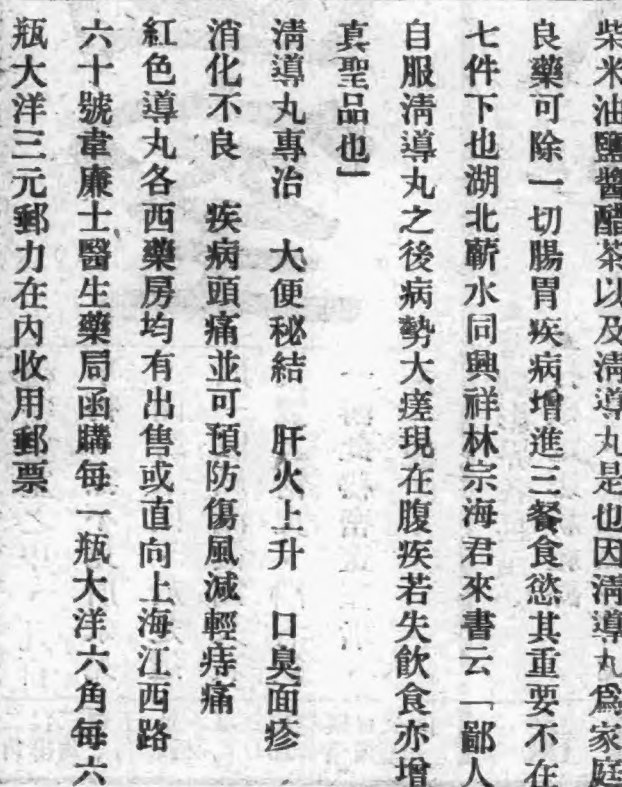 柴米油鹽醬醋茶以及淸導丸是也因淸導丸爲家庭
良藥可除一切腸胃疾病增進三餐食慾其重要不在
七件下也湖北蘄水同興祥林宗海君來書云「鄙人
自服淸導丸之後病勢大瘥現在腹疾若失飮食亦增
真聖品也」
淸導丸專治　大便秘結　肝火上升　口臭面疹
消化不良　疾病頭痛並可預防傷風減輕痔痛
紅色導丸各西藥房均有出售或直向上海江西路
六十號韋廉士醫生藥局函購每一瓶大洋六角每六
瓶大洋三元郵力在內收用郵票